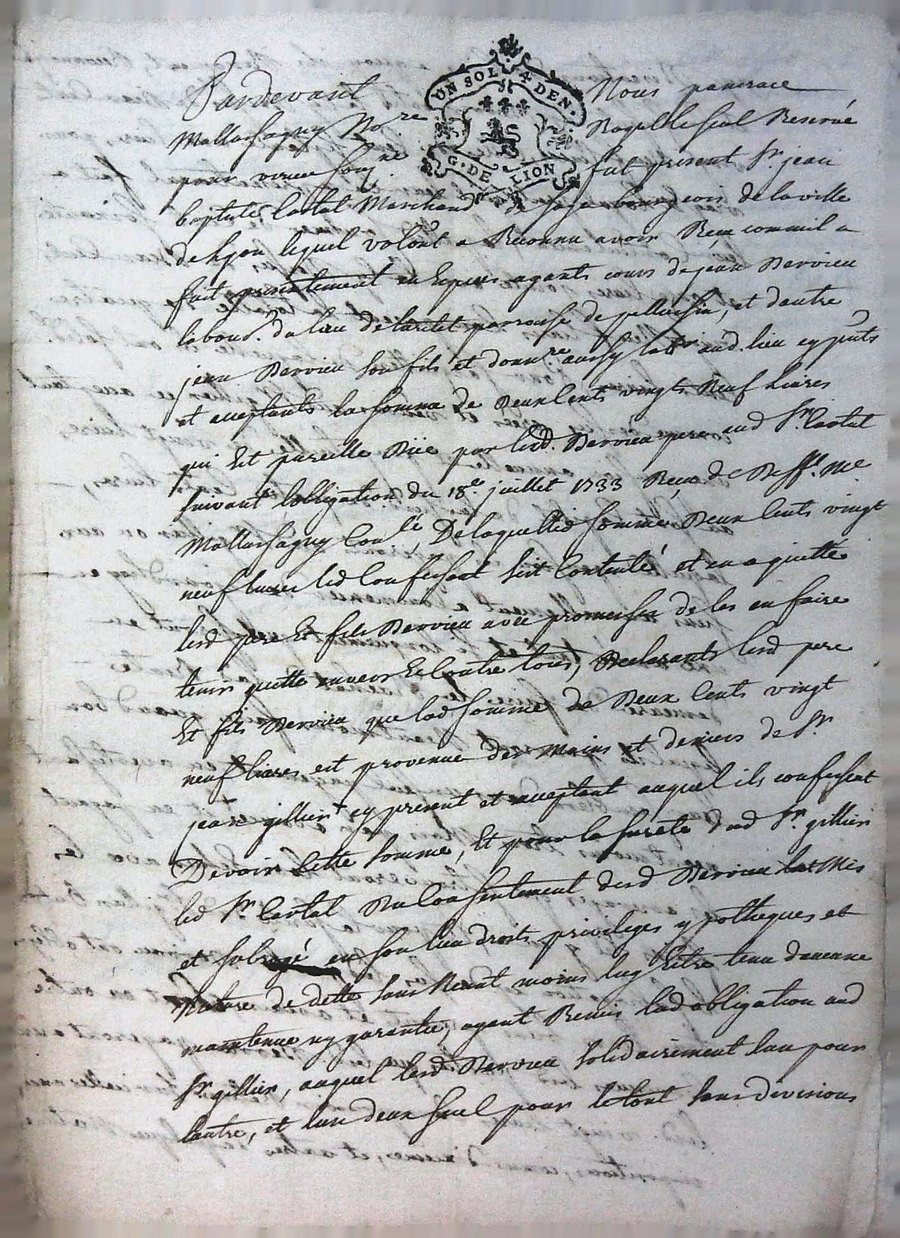 UN SOL 4 DEN.
G. DE LION
Pardevant Nous panerace
Mallassagny No.re Royal le seul Reservé
pour vience soug.né fut present Sr. jean
baptiste Cartal Marchand de soye bourgeois de la ville
de Lyon lequel volont. a Reconnu avoir Receu comme il a
fait presentement en Espeses agents cours de jean Dervieu
labour. du lieu de parroisse de pellussin, et dautre
jean Dervieu son fils et donn.re aussy lab.r aud. lieu cy pnts
et acceptants la somme de Deux Cents vingts Neuf Livres
qui Est pareille Düe par led. Dervieu pere aud Sr. Cartal
suivant lobligation du 18.e juillet 1733 Receu de Deff.t me
Mallassagny De laquelle somme Deux Cents vingt
neuf livres led Confessant sest Contenté et en a quitté
lesd pere Et fils Dervieu avec promesse de les en faire
tenir quitte envers Et Contre tous, Declarants lesd pere
Et fils Dervieu que lad somme de Deux Cents vingt
neuf livres est provenue des mains et deniers de Sr.
jean gillier + cy present et acceptant auquel ils confessent
Devoir Cette somme, Et pour la sureté dud Sr. gillier
led Sr. Cartal Du Consentement desd Dervieu la Mis
et subrogé en son lieu droits privileges ypotheques et
Nature de dette sans Neant moins luy Estre tenu daucune
maintenue ny garantie, ayant Remis lad obligation aud
Sr. gillier, auquel lesd Dervieu solidairement lun pour
lautre, et lun deux seul pour le tout sans divisions